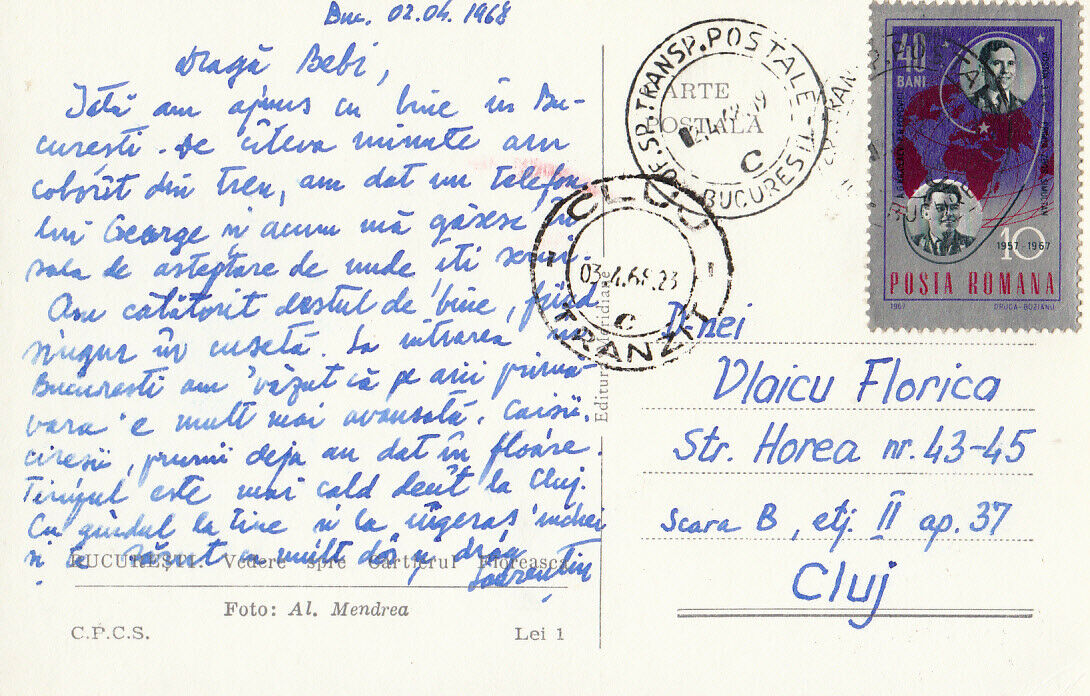 Buc. 02.04.1968
Dragă Bebi,
Iată am ajuns cu bine în Bu-
curești. De cîteva minute am
coborît din tren, am dat un telefon
lui George și acum mă găsesc în
sala de așteptare de unde îți scriu.
Am călătorit destul de bine, fiind
singur în cușetă. La intrarea în
București am văzut că pe aici primă-
vara e mult mai avansată. Caișii.
cireșii, prunii deja au dat în floare.
Timpul este mai cald decît la Cluj.
Cu gîndul la tine și la îngeraș închei
și sărut cu mult dor și drag
Laurențiu
BUCUREȘTI. Vedere spre Cartierul Floreasca
Foto: Al. Mendrea
C.P.C.S.
Lei 1
Editura Meridiane
CARTE
POȘTALĂ
OF.SP.TRANSP.POSTALE
BUCURESTI
C
CLUJ
03.4.68.23
C
TRANZIT
40
BANI
10
1957-1967
POSTA ROMANA
1967
DRUCA-BOZIANU
D-nei
Vlaicu Florica
Str. Horea nr. 43-45
Scara B, etj. II ap. 37
Cluj